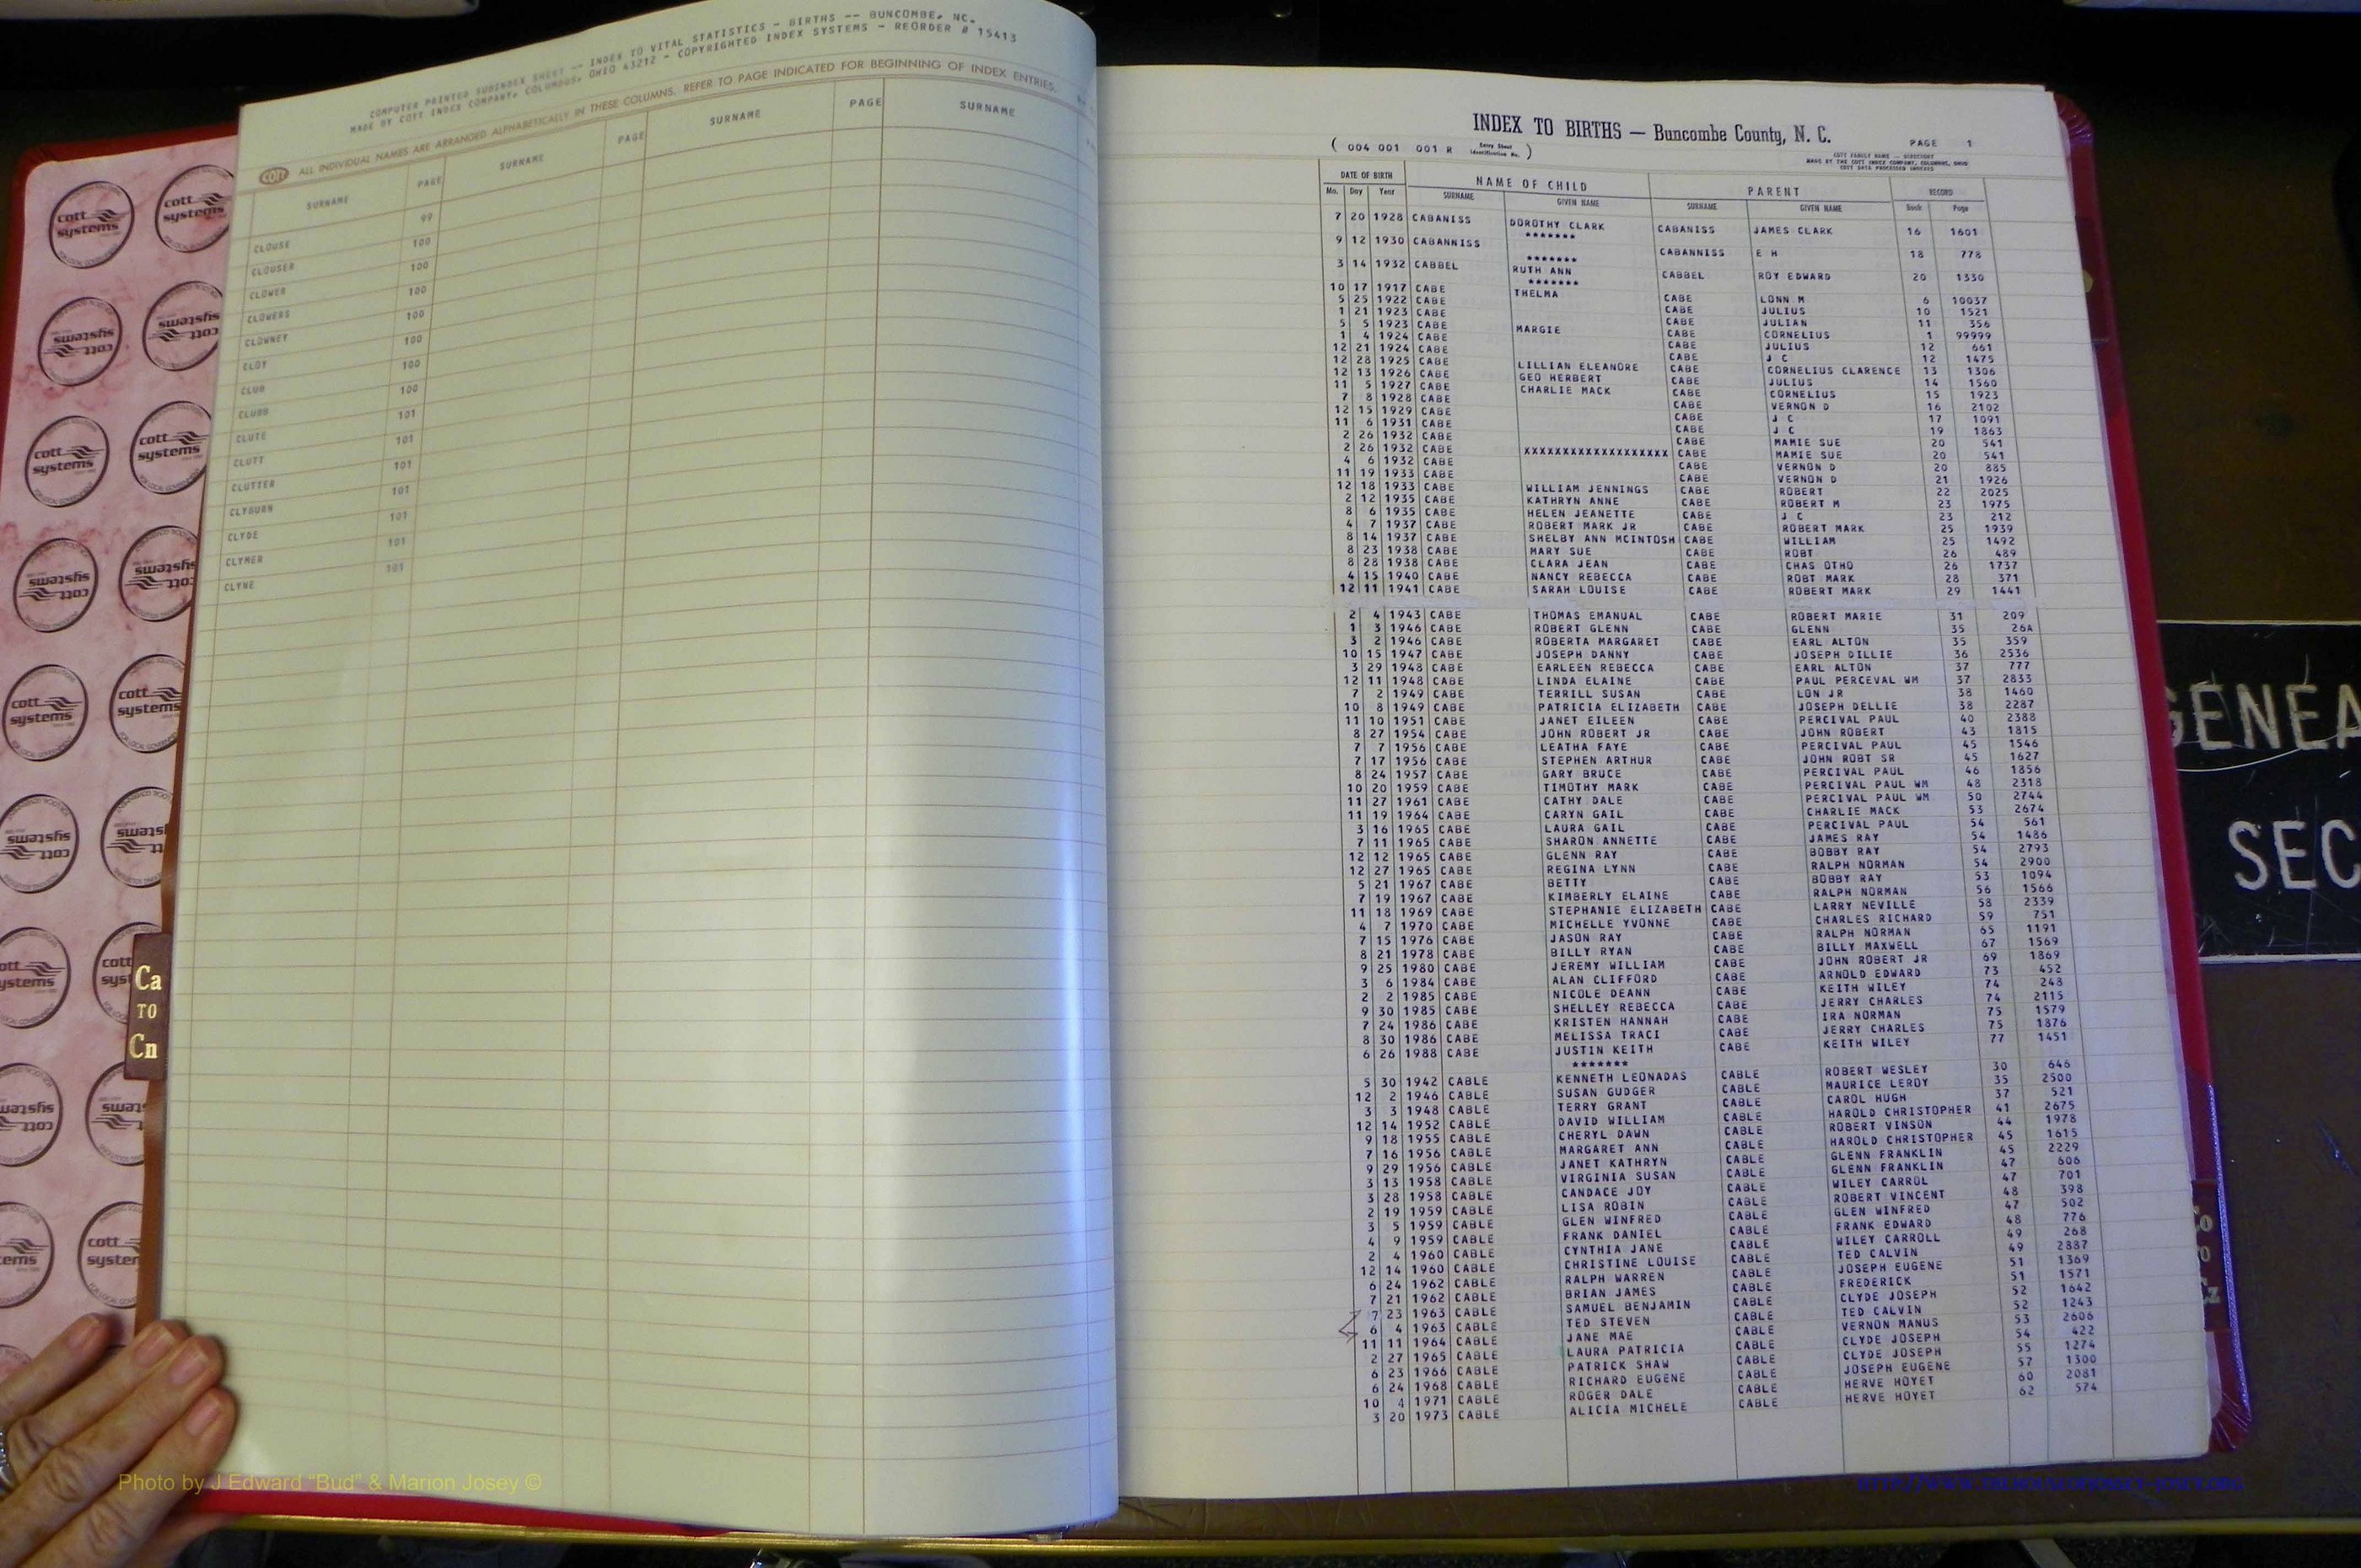 COMPUTER PRINTED SUBINDEX SHEET -- INDEX TO VITAL STATISTICS - BIRTHS -- BUNCOMBE, NC.
MADE BY COTT INDEX COMPANY, COLUMBUS, OHIO 43212 - COPYRIGHTED INDEX SYSTEMS - REORDER # 15413
COTT ALL INDIVIDUAL NAMES ARE ARRANGED ALPHABETICALLY IN THESE COLUMNS. REFER TO PAGE INDICATED FOR BEGINNING OF INDEX ENTRIES.
SURNAME PAGE SURNAME PAGE SURNAME PAGE SURNAME
CLOUSE 99
CLOUSER 100
CLOWER 100
CLOWERS 100
CLOWNEY 100
CLOY 100
CLUB 100
CLUBB 100
CLUTE 101
CLUTT 101
CLUTTER 101
CLYBURN 101
CLYDE 101
CLYMER 101
CLYNE 101
Ca
TO
Cn
INDEX TO BIRTHS — Buncombe County, N. C.
( 004 001 001 R Entry Sheet Identification No. ) PAGE 1
COTT FAMILY NAME — DIRECTORY
MADE BY THE COTT INDEX COMPANY, COLUMBUS, OHIO
COTT DATA PROCESSED INDEXES
DATE OF BIRTH NAME OF CHILD PARENT RECORD
Mo. Day Year SURNAME GIVEN NAME SURNAME GIVEN NAME Book Page
7 20 1928 CABANISS DOROTHY CLARK CABANISS JAMES CLARK 16 1601
*******
9 12 1930 CABANNISS CABANNISS E H 18 778
*******
3 14 1932 CABBEL RUTH ANN CABBEL ROY EDWARD 20 1330
*******
10 17 1917 CABE THELMA CABE LONN M 6 10037
5 25 1922 CABE CABE JULIUS 10 1521
1 21 1923 CABE CABE JULIAN 11 356
5 5 1923 CABE MARGIE CABE CORNELIUS 1 99999
1 4 1924 CABE CABE JULIUS 12 661
12 21 1924 CABE CABE J C 12 1475
12 28 1925 CABE LILLIAN ELEANORE CABE CORNELIUS CLARENCE 13 1306
12 13 1926 CABE GEO HERBERT CABE JULIUS 14 1560
11 5 1927 CABE CHARLIE MACK CABE CORNELIUS 15 1923
7 8 1928 CABE CABE VERNON D 16 2102
12 15 1929 CABE CABE J C 17 1091
11 6 1931 CABE CABE J C 19 1863
2 26 1932 CABE CABE MAMIE SUE 20 541
2 26 1932 CABE XXXXXXXXXXXXXXXXXXX CABE MAMIE SUE 20 541
4 6 1932 CABE CABE VERNON D 20 885
11 19 1933 CABE CABE VERNON D 21 1926
12 18 1933 CABE WILLIAM JENNINGS CABE ROBERT 22 2025
2 12 1935 CABE KATHRYN ANNE CABE ROBERT M 23 1975
8 6 1935 CABE HELEN JEANETTE CABE J C 23 212
4 7 1937 CABE ROBERT MARK JR CABE ROBERT MARK 25 1939
8 14 1937 CABE SHELBY ANN MCINTOSH CABE WILLIAM 25 1492
8 23 1938 CABE MARY SUE CABE ROBT 26 489
8 28 1938 CABE CLARA JEAN CABE CHAS OTHO 26 1737
4 15 1940 CABE NANCY REBECCA CABE ROBT MARK 28 371
12 11 1941 CABE SARAH LOUISE CABE ROBERT MARK 29 1441
2 4 1943 CABE THOMAS EMANUAL CABE ROBERT MARIE 31 209
1 3 1946 CABE ROBERT GLENN CABE GLENN 35 26A
3 2 1946 CABE ROBERTA MARGARET CABE EARL ALTON 35 359
10 15 1947 CABE JOSEPH DANNY CABE JOSEPH DILLIE 36 2536
3 29 1948 CABE EARLEEN REBECCA CABE EARL ALTON 37 777
12 11 1948 CABE LINDA ELAINE CABE PAUL PERCEVAL WM 37 2833
7 2 1949 CABE TERRILL SUSAN CABE LON JR 38 1460
10 8 1949 CABE PATRICIA ELIZABETH CABE JOSEPH DELLIE 38 2287
11 10 1951 CABE JANET EILEEN CABE PERCIVAL PAUL 40 2388
8 27 1954 CABE JOHN ROBERT JR CABE JOHN ROBERT 43 1815
7 7 1956 CABE LEATHA FAYE CABE PERCIVAL PAUL 45 1546
7 17 1956 CABE STEPHEN ARTHUR CABE JOHN ROBT SR 45 1627
8 24 1957 CABE GARY BRUCE CABE PERCIVAL PAUL 46 1856
10 20 1959 CABE TIMOTHY MARK CABE PERCIVAL PAUL WM 48 2318
11 27 1961 CABE CATHY DALE CABE PERCIVAL PAUL WM 50 2744
11 19 1964 CABE CARYN GAIL CABE CHARLIE MACK 53 2674
3 16 1965 CABE LAURA GAIL CABE PERCIVAL PAUL 54 561
7 11 1965 CABE SHARON ANNETTE CABE JAMES RAY 54 1486
12 12 1965 CABE GLENN RAY CABE BOBBY RAY 54 2793
12 27 1965 CABE REGINA LYNN CABE RALPH NORMAN 54 2900
5 21 1967 CABE BETTY CABE BOBBY RAY 53 1094
7 19 1967 CABE KIMBERLY ELAINE CABE RALPH NORMAN 56 1566
11 18 1969 CABE STEPHANIE ELIZABETH CABE LARRY NEVILLE 58 2339
4 7 1970 CABE MICHELLE YVONNE CABE CHARLES RICHARD 59 751
7 15 1976 CABE JASON RAY CABE RALPH NORMAN 65 1191
8 21 1978 CABE BILLY RYAN CABE BILLY MAXWELL 67 1569
9 25 1980 CABE JEREMY WILLIAM CABE JOHN ROBERT JR 69 1869
3 6 1984 CABE ALAN CLIFFORD CABE ARNOLD EDWARD 73 452
2 2 1985 CABE NICOLE DEANN CABE KEITH WILEY 74 248
9 30 1985 CABE SHELLEY REBECCA CABE JERRY CHARLES 74 2115
7 24 1986 CABE KRISTEN HANNAH CABE IRA NORMAN 75 1579
8 30 1986 CABE MELISSA TRACI CABE JERRY CHARLES 75 1876
6 26 1988 CABE JUSTIN KEITH CABE KEITH WILEY 77 1451
*******
5 30 1942 CABLE KENNETH LEONADAS CABLE ROBERT WESLEY 30 646
12 2 1946 CABLE SUSAN GUDGER CABLE MAURICE LEROY 35 2500
3 3 1948 CABLE TERRY GRANT CABLE CAROL HUGH 37 521
12 14 1952 CABLE DAVID WILLIAM CABLE HAROLD CHRISTOPHER 41 2675
9 18 1955 CABLE CHERYL DAWN CABLE ROBERT VINSON 44 1978
7 16 1956 CABLE MARGARET ANN CABLE HAROLD CHRISTOPHER 45 1615
9 29 1956 CABLE JANET KATHRYN CABLE GLENN FRANKLIN 45 2229
3 13 1958 CABLE VIRGINIA SUSAN CABLE GLENN FRANKLIN 47 606
3 28 1958 CABLE CANDACE JOY CABLE WILEY CARROL 47 701
2 19 1959 CABLE LISA ROBIN CABLE ROBERT VINCENT 48 398
3 5 1959 CABLE GLEN WINFRED CABLE GLEN WINFRED 47 502
4 9 1959 CABLE FRANK DANIEL CABLE FRANK EDWARD 48 776
2 4 1960 CABLE CYNTHIA JANE CABLE WILEY CARROLL 49 268
12 14 1960 CABLE CHRISTINE LOUISE CABLE TED CALVIN 49 2887
6 24 1962 CABLE RALPH WARREN CABLE JOSEPH EUGENE 51 1369
7 21 1962 CABLE BRIAN JAMES CABLE FREDERICK 51 1571
7 23 1963 CABLE SAMUEL BENJAMIN CABLE CLYDE JOSEPH 52 1642
6 4 1963 CABLE TED STEVEN CABLE TED CALVIN 52 1243
11 11 1964 CABLE JANE MAE CABLE VERNON MANUS 53 2606
2 27 1965 CABLE LAURA PATRICIA CABLE CLYDE JOSEPH 54 422
6 23 1966 CABLE PATRICK SHAW CABLE CLYDE JOSEPH 55 1274
6 24 1968 CABLE RICHARD EUGENE CABLE JOSEPH EUGENE 57 1300
10 4 1971 CABLE ROGER DALE CABLE HERVE HOYET 60 2081
3 20 1973 CABLE ALICIA MICHELE CABLE HERVE HOYET 62 574
GENEA
SEC
cott systems
Photo by J Edward "Bud" & Marion Josey ©
HTTP://WWW.THEHOUSEOFJOSSEY-JOSEY.ORG